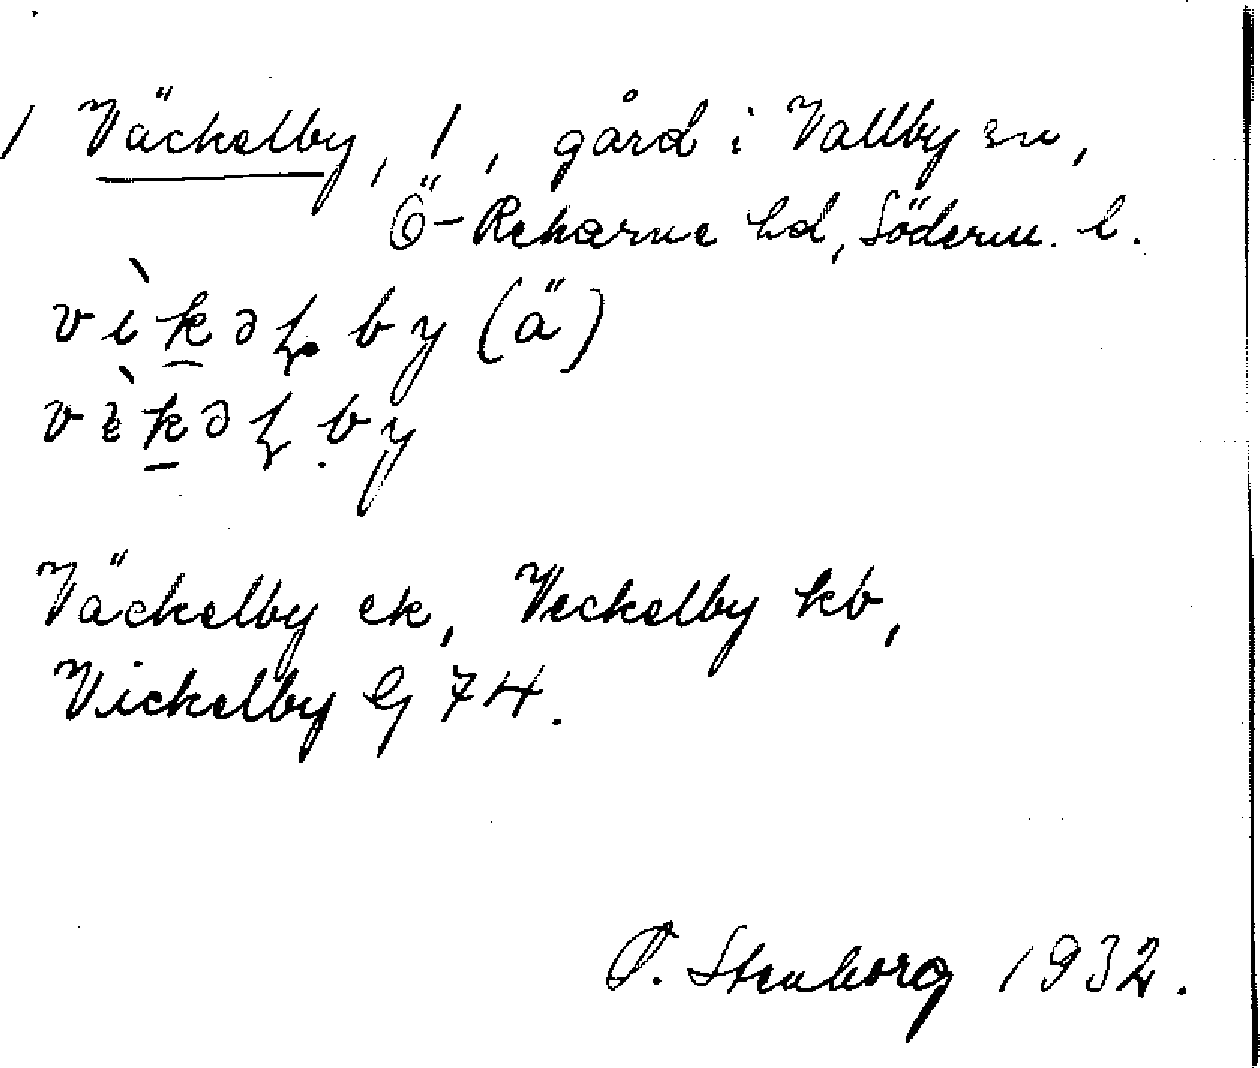 1 Väckelby, 1, gård i Vallby sn,
Ö-Rekarne hd, Söderm. l.
vìkəɭby (ä)
vèkəɭby
Väckelby ek, Veckelby kb,
Vickelby G 74.
O. Stenborg 1932.